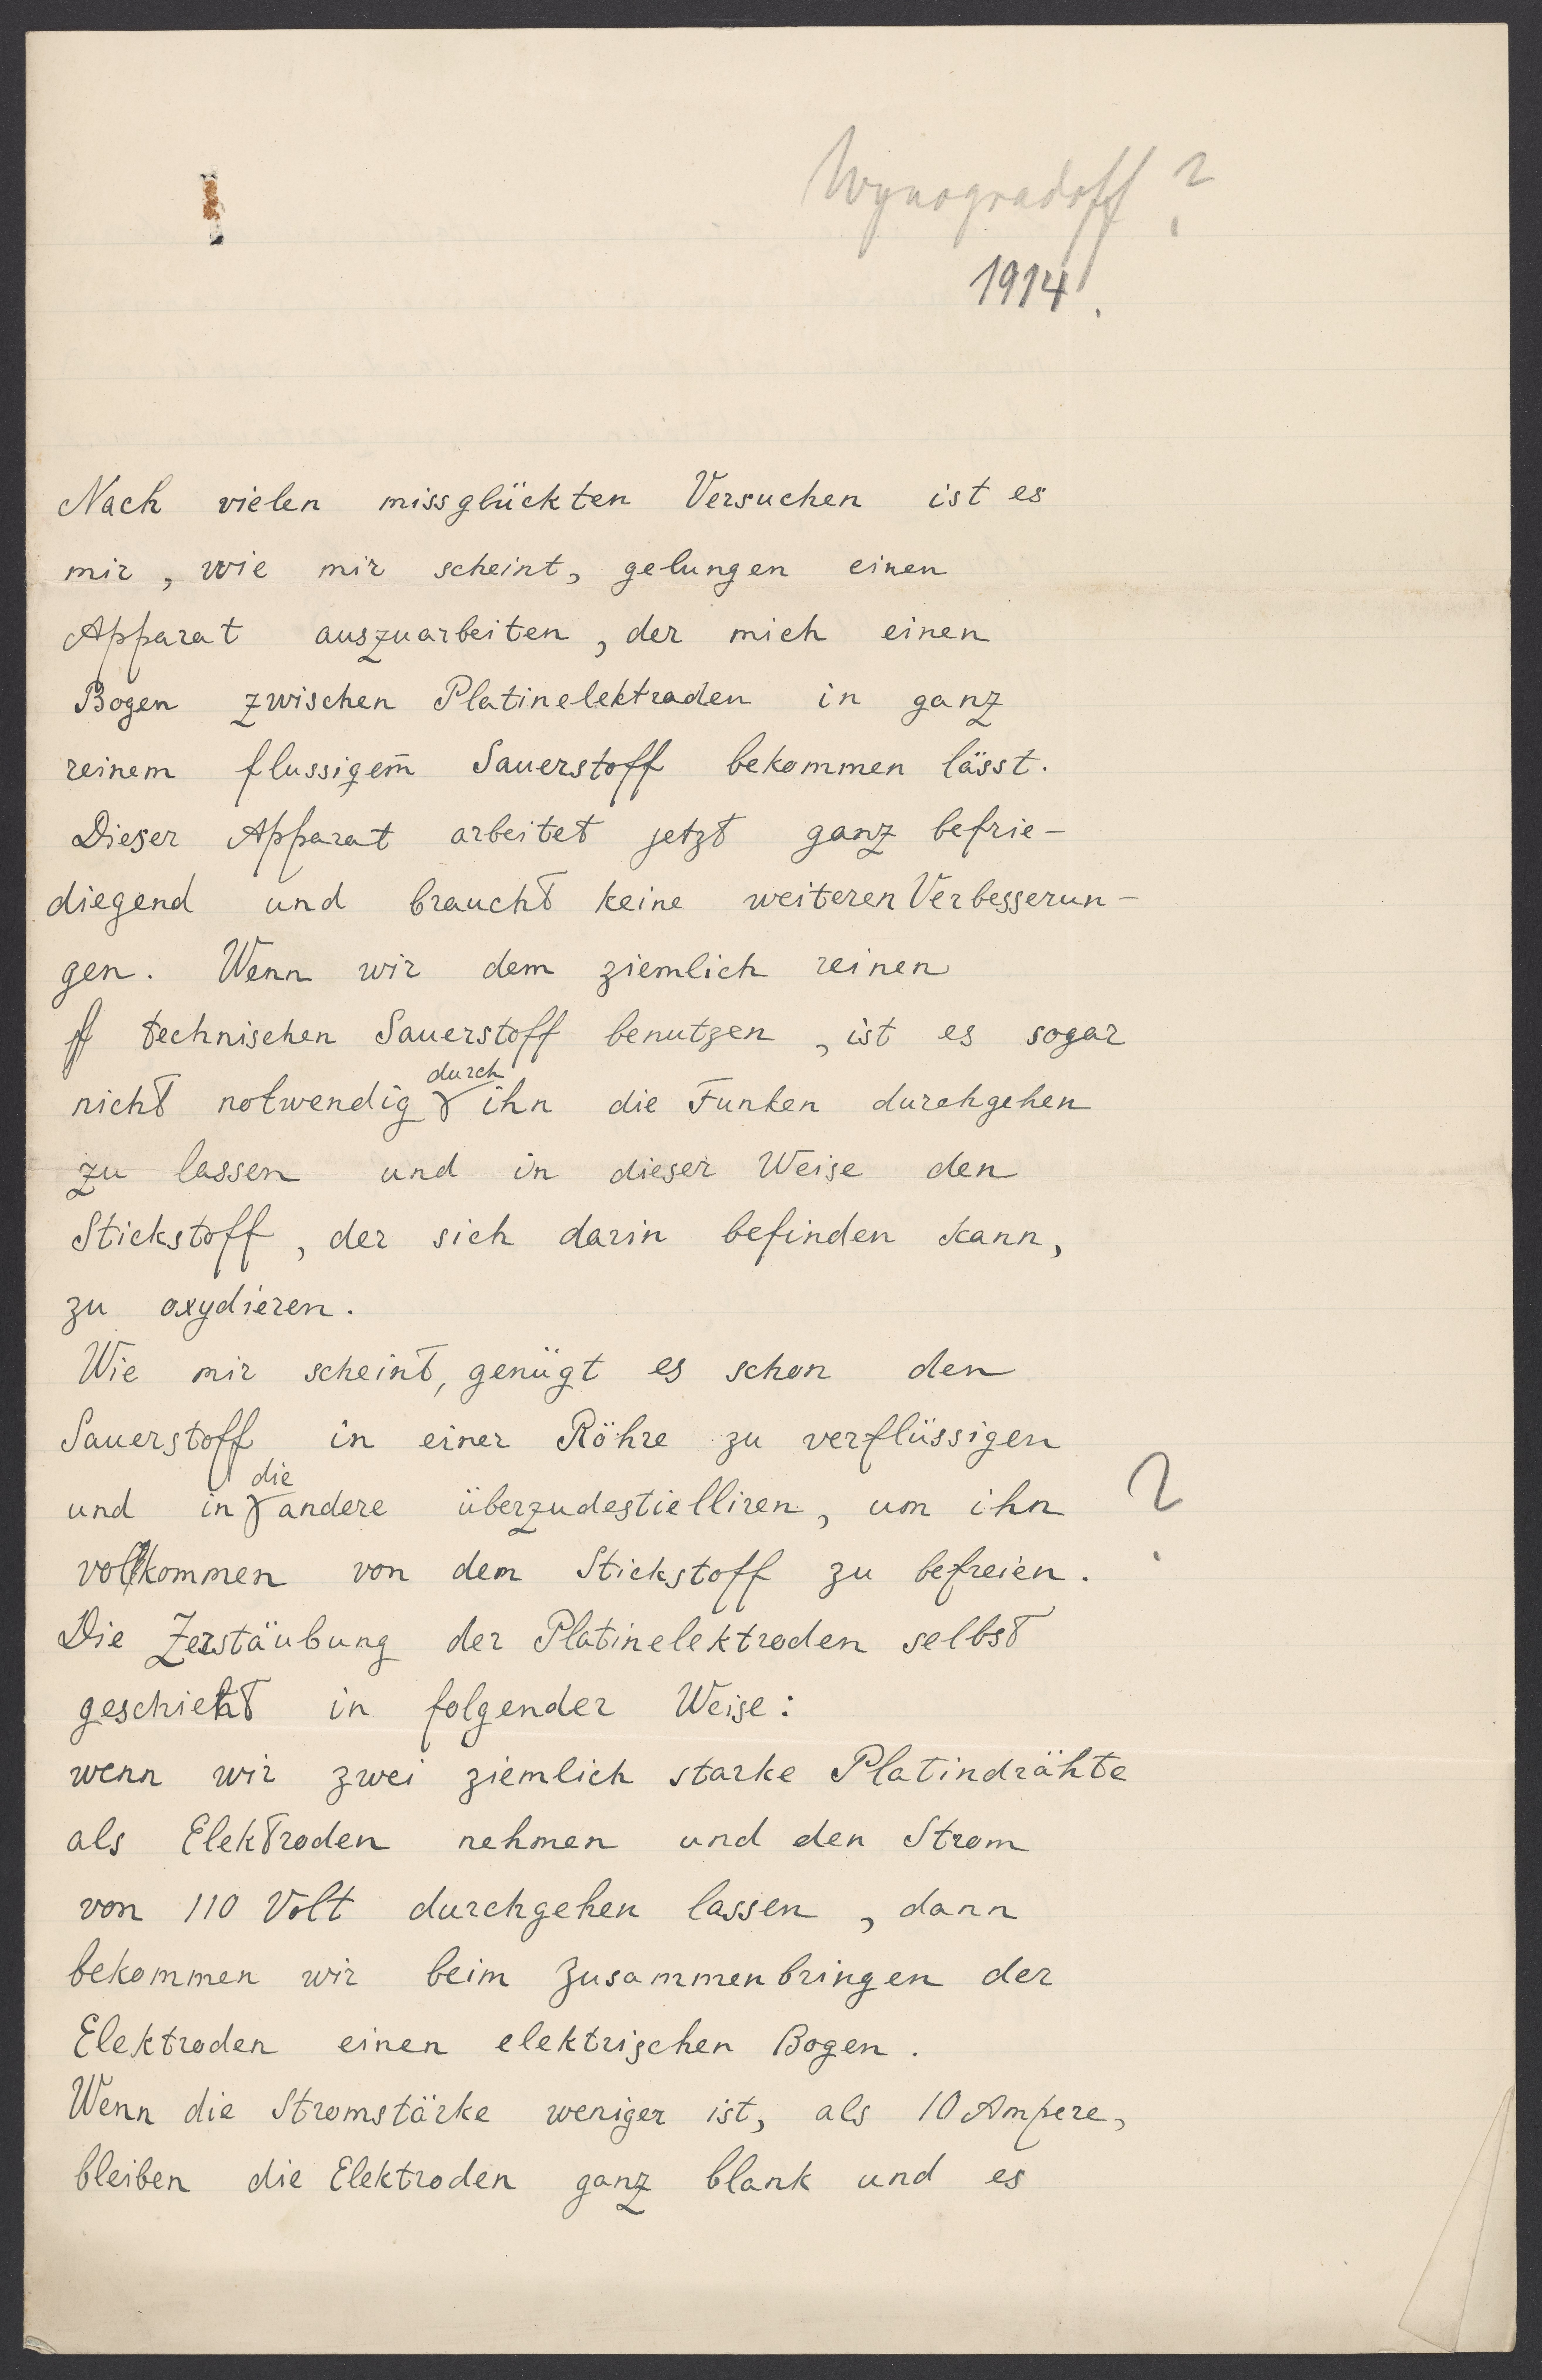 Wynogradoff ?
1914.
Nach vielen missglückten Versuchen ist es
mir, wie mir scheint, gelungen einen
Apparat auszuarbeiten, der mich einen
Bogen zwischen Platinelektraden in ganz
reinem flussigem̄ Sauerstoff bekommen lässt.
Dieser Apparat arbeitet jetzt ganz befrie-
diegend und braucht keine weiteren Verbesserun-
gen. Wenn wir dem ziemlich reinen
technischen Sauerstoff benutzen, ist es sogar
nicht notwendig durch ihn die Funken durchgehen
zu lassen und in dieser Weise den
Stickstoff, der sich darin befinden kann,
zu oxydieren.
Wie mir scheint, genügt es schon den
Sauerstoff in einer Röhre zu verflüssigen
und in die andere überzudestielliren, um ihn ?
vollkommen von dem Stickstoff zu befreien.
Die Zerstäubung der Platinelektroden selbst
geschieht in folgender Weise:
wenn wir zwei ziemlich starke Platindrähte
als Elektroden nehmen und den Strom
von 110 Volt durchgehen lassen, dann
bekommen wir beim Zusammenbringen der
Elektroden einen elektrischen Bogen.
Wenn die Stromstärke weniger ist, als 10 Ampere,
bleiben die Elektroden ganz blank und es